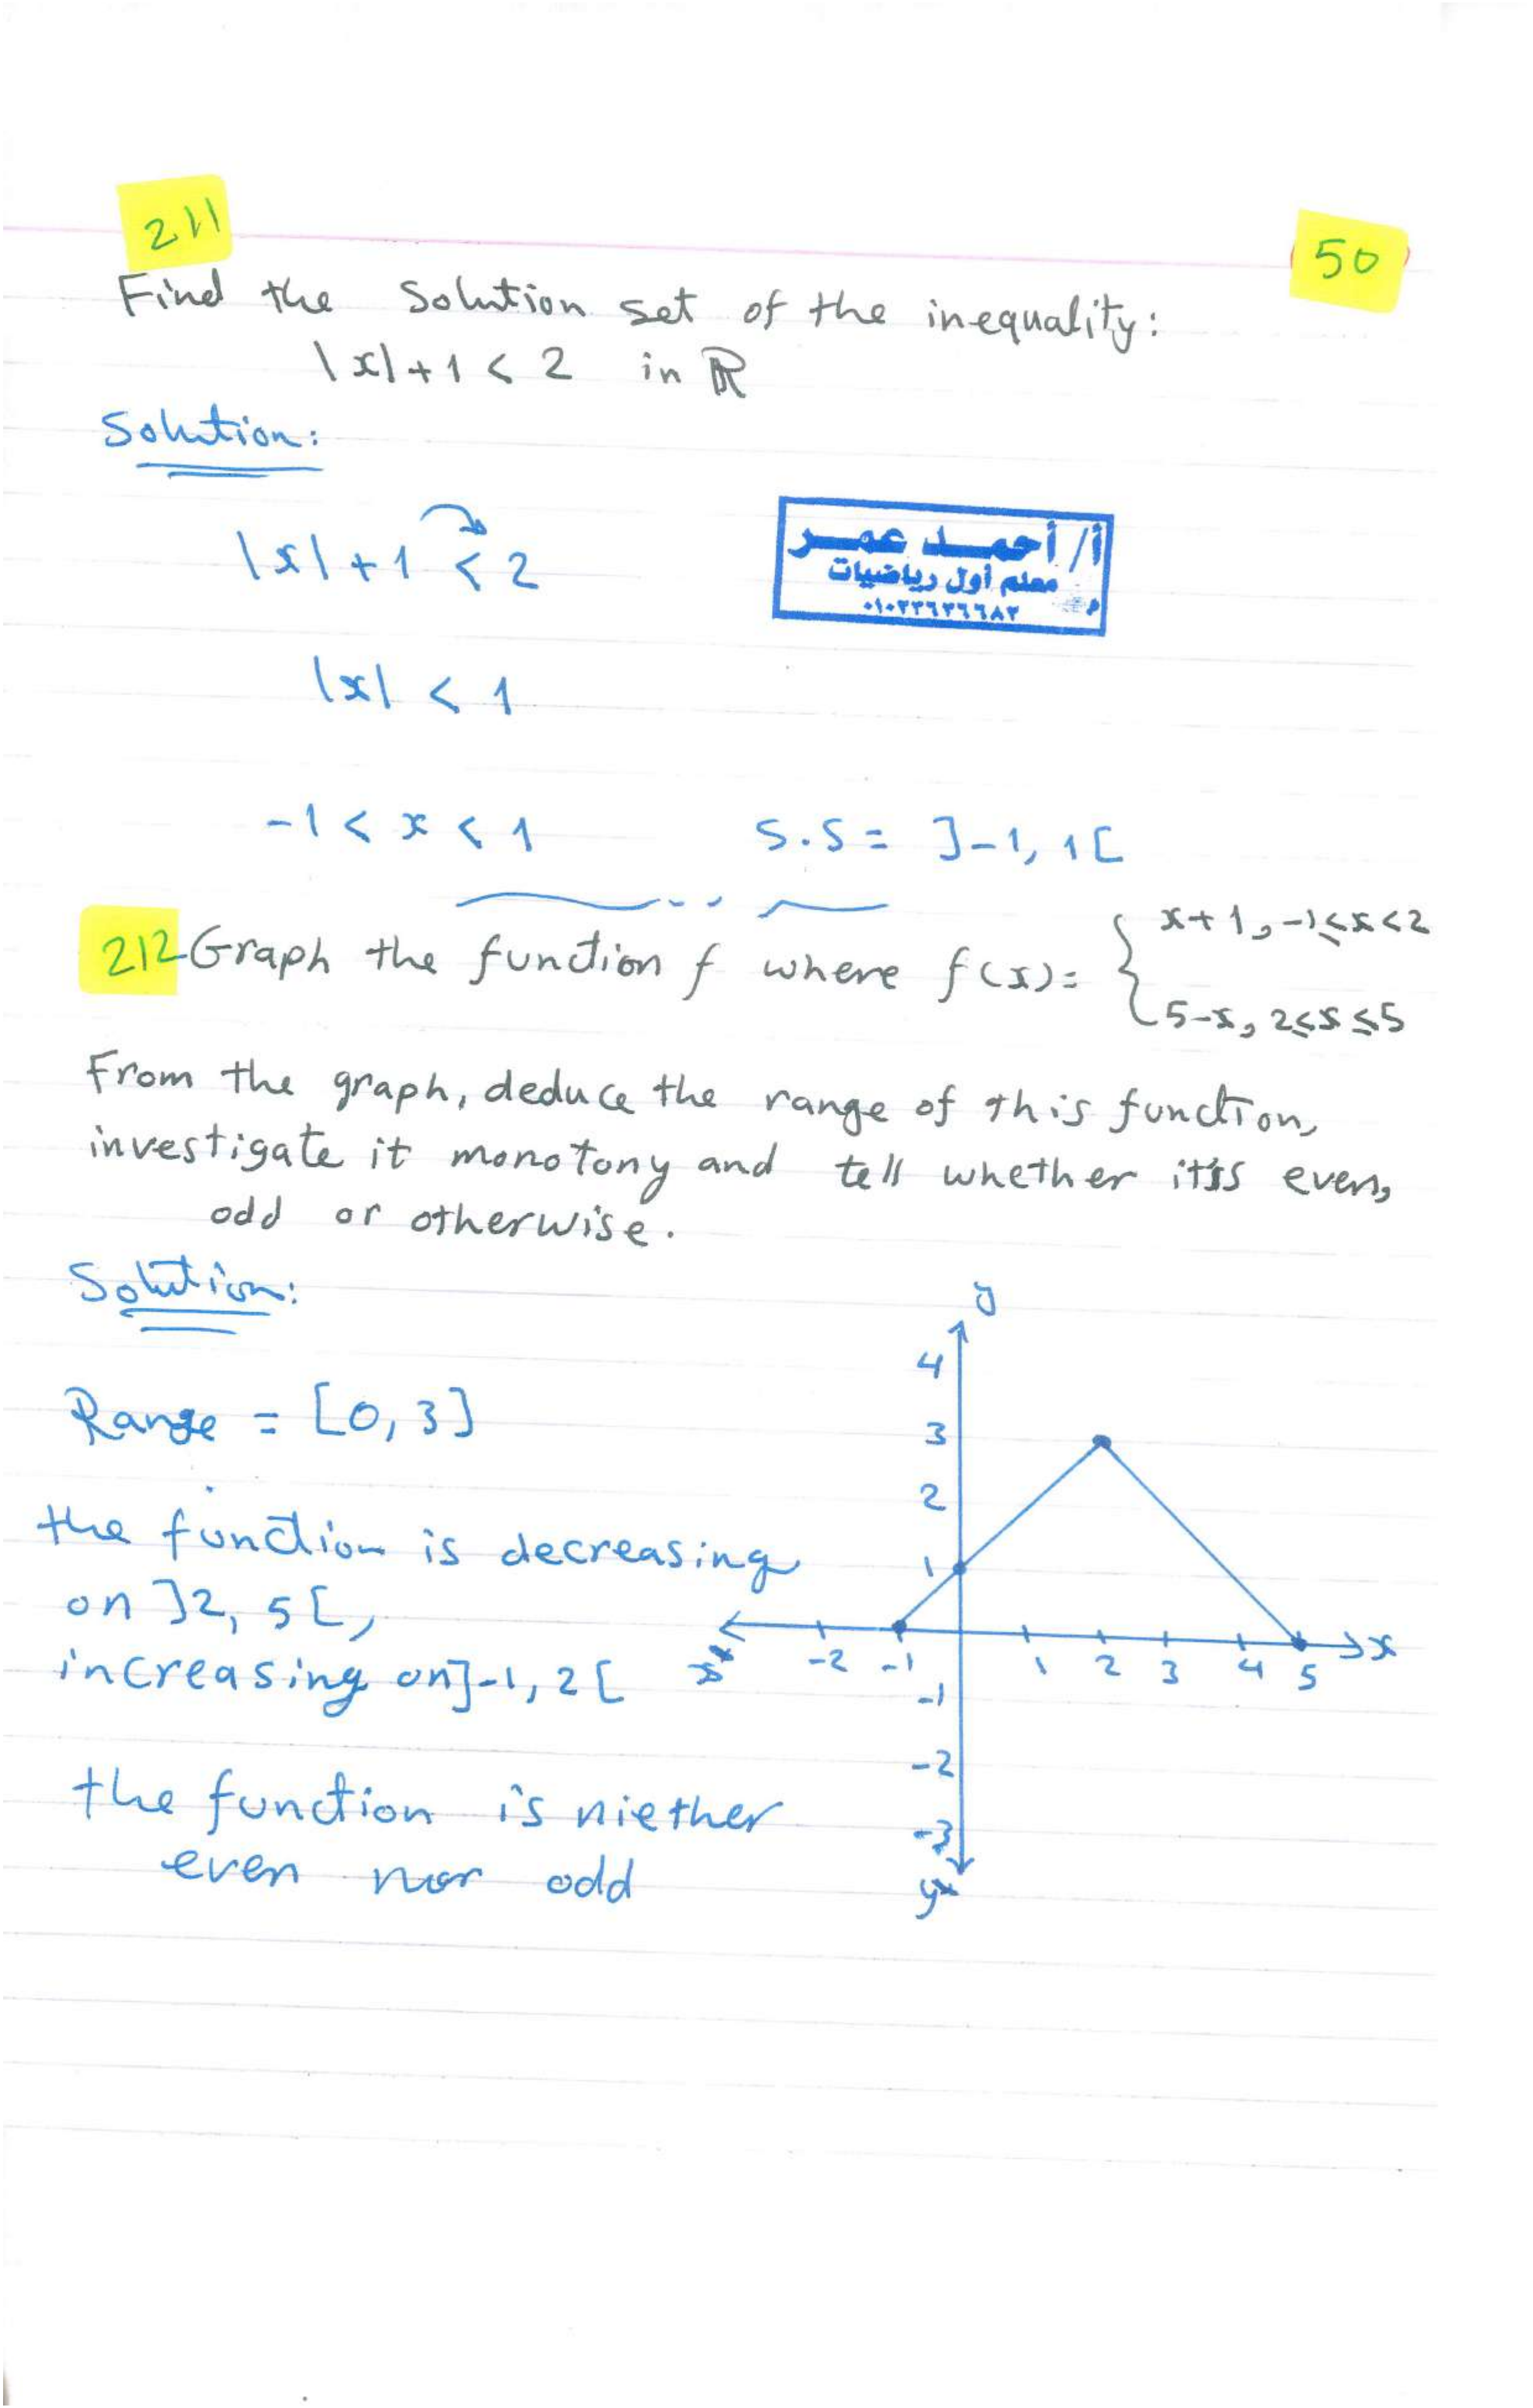 211
50
Find the solution set of the inequality:
|x|+1 < 2 in ℝ
Solution:
|x|+1 < 2
أ/ أحمد عمر
معلم أول رياضيات
|x| < 1
-1 < x < 1 S.S = ]-1, 1[
212-Graph the function f where f(x)= { x+1, -1≤x<2
5-x, 2≤x≤5
From the graph, deduce the range of this function,
investigate it monotony and tell whether it's even,
odd or otherwise.
Solution:
Range = [0, 3]
the function is decreasing
on ]2, 5[,
increasing on ]-1, 2[
the function is niether
even nor odd
y
4
3
2
1
x' -2 -1 1 2 3 4 5 x
-1
-2
-3
y'